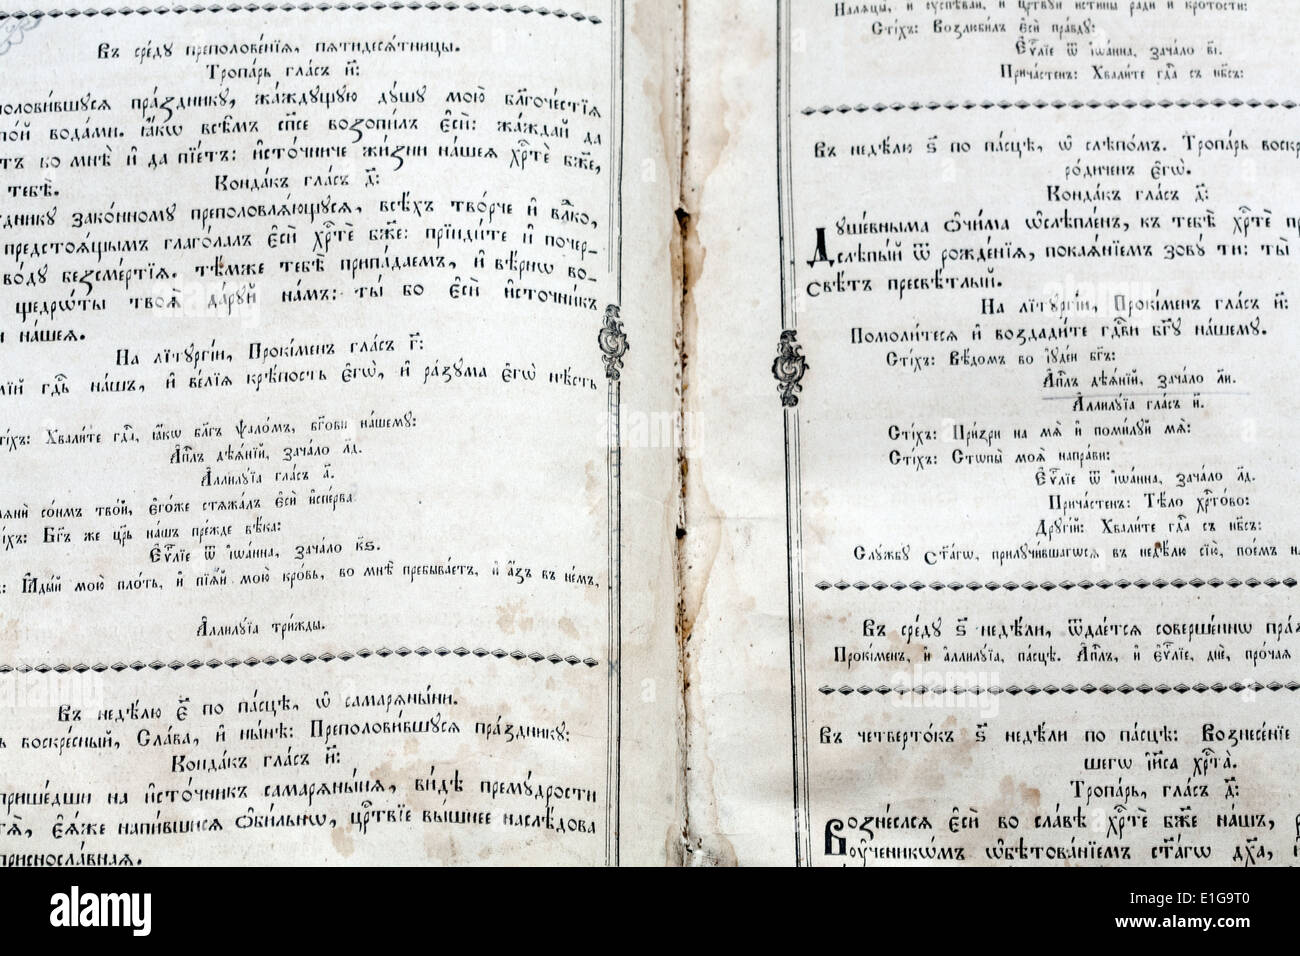 Въ сре́ду преполове́нїѧ, пѧтидесѧ́тницы.
Тропа́рь гла́съ и҃:
пра́зднику, жа́ждущую ду́шу мою̀ бл҃гоче́стїѧ
вода́ми. ꙗ҆́кѡ всѣ̑мъ сп҃се возопи́лъ є҆сѝ: жа́ждай да
ко мнѣ̀ и҆ да пїе́тъ: и҆сто́чниче жи́зни на́шеѧ хрⷭ҇тѐ бж҃е,
тебѣ̀.
Конда́къ гла́съ д҃:
зако́нному преполовлѧ́ющусѧ, всѣ́хъ тво́рче и҆ влⷣко,
предстоѧ́щымъ глаго́лалъ є҆сѝ хрⷭ҇тѐ бж҃е: прїиди́те и҆ поче́р-
во́ду безсме́ртїѧ. тѣ́мже тебѣ̀ припа́даемъ, и҆ вѣ́рнѡ во-
щедрѡ́ты твоѧ̑ да́руй на́мъ: ты́ бо є҆сѝ и҆сто́чникъ
на́шеѧ.
На лїтꙋргі́и, Прокі́менъ гла́съ г҃:
гдⷭ҇ь на́шъ, и҆ ве́лїѧ крѣ́пость є҆гѡ̀, и҆ ра́зума є҆гѡ̀ нѣ́сть
Хвали́те гдⷭ҇а, ꙗ҆́кѡ бл҃гъ ѱало́мъ, бг҃ови на́шему:
А҆пⷭ҇лъ дѣѧ́нїй, зача́ло л҃д.
А҆ллилу́їа гла́съ а҃.
со́нмъ тво́й, є҆го́же стѧжа́лъ є҆сѝ и҆спе́рва
Бг҃ъ же цр҃ь на́шъ пре́жде вѣ́ка:
Є҆ѵⷢ҇лїе ѿ і҆ѡа́нна, зача́ло к҃ѕ.
Ꙗ҆ды́й мою̀ пло́ть, и҆ пїѧ́й мою̀ кро́вь, во мнѣ̀ пребыва́етъ, и҆ а҆́зъ въ не́мъ,
А҆ллилу́їа три́жды.
Въ недѣ́лю є҃ по па́сцѣ, ѡ҆ самарѧны́ни.
воскре́сный, Сла́ва, и҆ ны́нѣ: Преполови́вшусѧ пра́зднику:
Конда́къ гла́съ и҃:
прише́дши на и҆сто́чникъ самарѧны́нѧ, ви́дѣ прему́дрости
є҆ѧ́же напи́вшисѧ ѻ҆би́льнѡ, црⷭ҇твїе вы́шнее наслѣ́дова
присносла́внаѧ.
Налѧцы̀, и҆ ᲂу҆спѣва́й, и҆ цр҃твуй и҆́стины ра́ди и҆ кро́тости:
Сті́хъ: Возлюби́лъ є҆сѝ пра́вду:
Є҆ѵⷢ҇лїе ѿ і҆ѡа́нна, зача́ло в҃і.
Прича́стенъ: Хвали́те гдⷭ҇а съ нб҃съ:
Въ недѣ́лю ѕ҃ по па́сцѣ, ѡ҆ слѣпо́мъ. Тропа́рь
є҆гѡ̀.
Конда́къ гла́съ д҃:
Душе́вныма ѻ҆чи́ма ѡ҆слѣпле́нъ, къ тебѣ̀ хрⷭ҇тѐ
слѣпы́й ѿ рожде́нїѧ, покаѧ́нїемъ зову́ ти: ты̀
свѣ́тъ пресвѣ́тлый.
На лїтꙋргі́и, Прокі́менъ гла́съ и҃:
Помоли́тесѧ и҆ воздади́те гдⷭ҇ви бг҃у на́шему.
Сті́хъ: Вѣ́домъ во і҆уде́и бг҃ъ:
А҆пⷭ҇лъ дѣѧ́нїй, зача́ло л҃и.
А҆ллилу́їа гла́съ и҃.
Сті́хъ: При́зри на мѧ̀ и҆ поми́луй мѧ̀:
Сті́хъ: Стѡпы̀ моѧ̑ напра́ви:
Є҆ѵⷢ҇лїе ѿ і҆ѡа́нна, зача́ло л҃д.
Прича́стенъ: Тѣ́ло хрⷭ҇то́во:
Другі́й: Хвали́те гдⷭ҇а съ нб҃съ:
Слу́жбу ст҃а́гѡ, прилучи́вшагѡсѧ въ недѣ́лю сїю̀, пое́мъ
Въ сре́ду ѕ҃ недѣ́ли, ѿдае́тсѧ соверше́ннѡ
Прокі́менъ, и҆ а҆ллилу́їа, па́сцѣ. А҆пⷭ҇лъ, и҆ є҆ѵⷢ҇лїе, днѐ, про́чаѧ
Въ четверто́къ ѕ҃ недѣ́ли по па́сцѣ: Вознесе́нїе
шегѡ і҆и҃са хрⷭ҇та̀.
Тропа́рь, гла́съ д҃:
Возне́слсѧ є҆сѝ во сла́вѣ хрⷭ҇тѐ бж҃е на́шъ,
ᲂу҆ченикѡ́мъ ѡ҆бѣтова́нїемъ ст҃а́гѡ дх҃а,
alamy
Image ID: E1G9T0
www.alamy.com